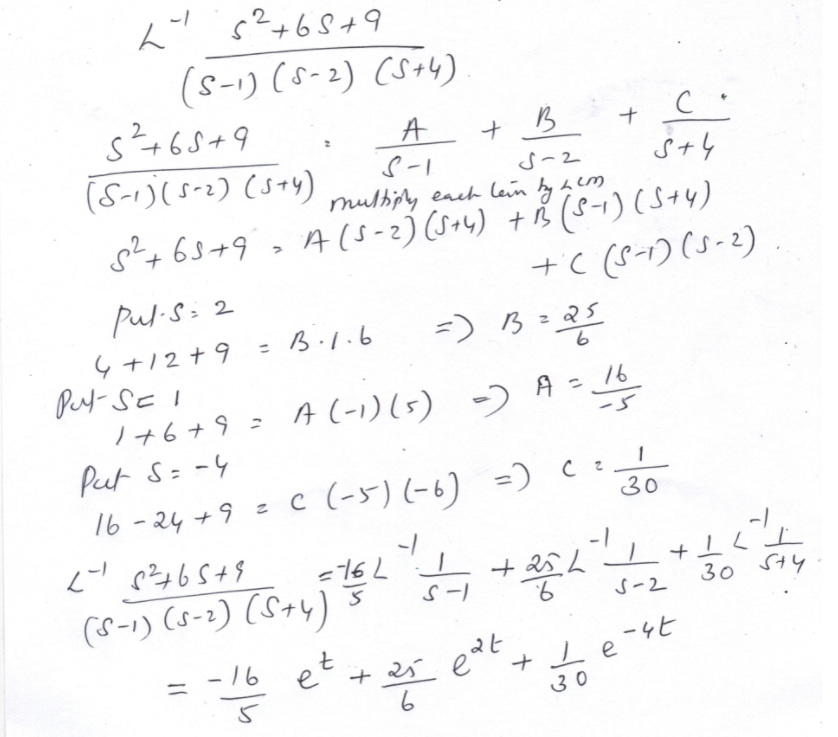 L⁻¹ s²+6s+9 / (s-1) (s-2) (s+4)
s²+6s+9 / (s-1)(s-2) (s+4) = A / s-1 + B / s-2 + C / s+4
multiply each term by LCM
s²+6s+9 = A(s-2)(s+4) + B(s-1)(s+4)
+ C (s-1)(s-2)
Put s = 2
4+12+9 = B·1·6 => B = 25/6
Put s = 1
1+6+9 = A(-1)(5) => A = 16/-5
Put s = -4
16-24+9 = C(-5)(-6) => C = 1/30
L⁻¹ s²+6s+9 / (s-1)(s-2)(s+4) = -16/5 L⁻¹ 1/s-1 + 25/6 L⁻¹ 1/s-2 + 1/30 L⁻¹ 1/s+4
= -16/5 e^t + 25/6 e^2t + 1/30 e^-4t